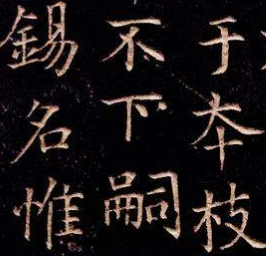 于夲枝
不下嗣
錫名惟